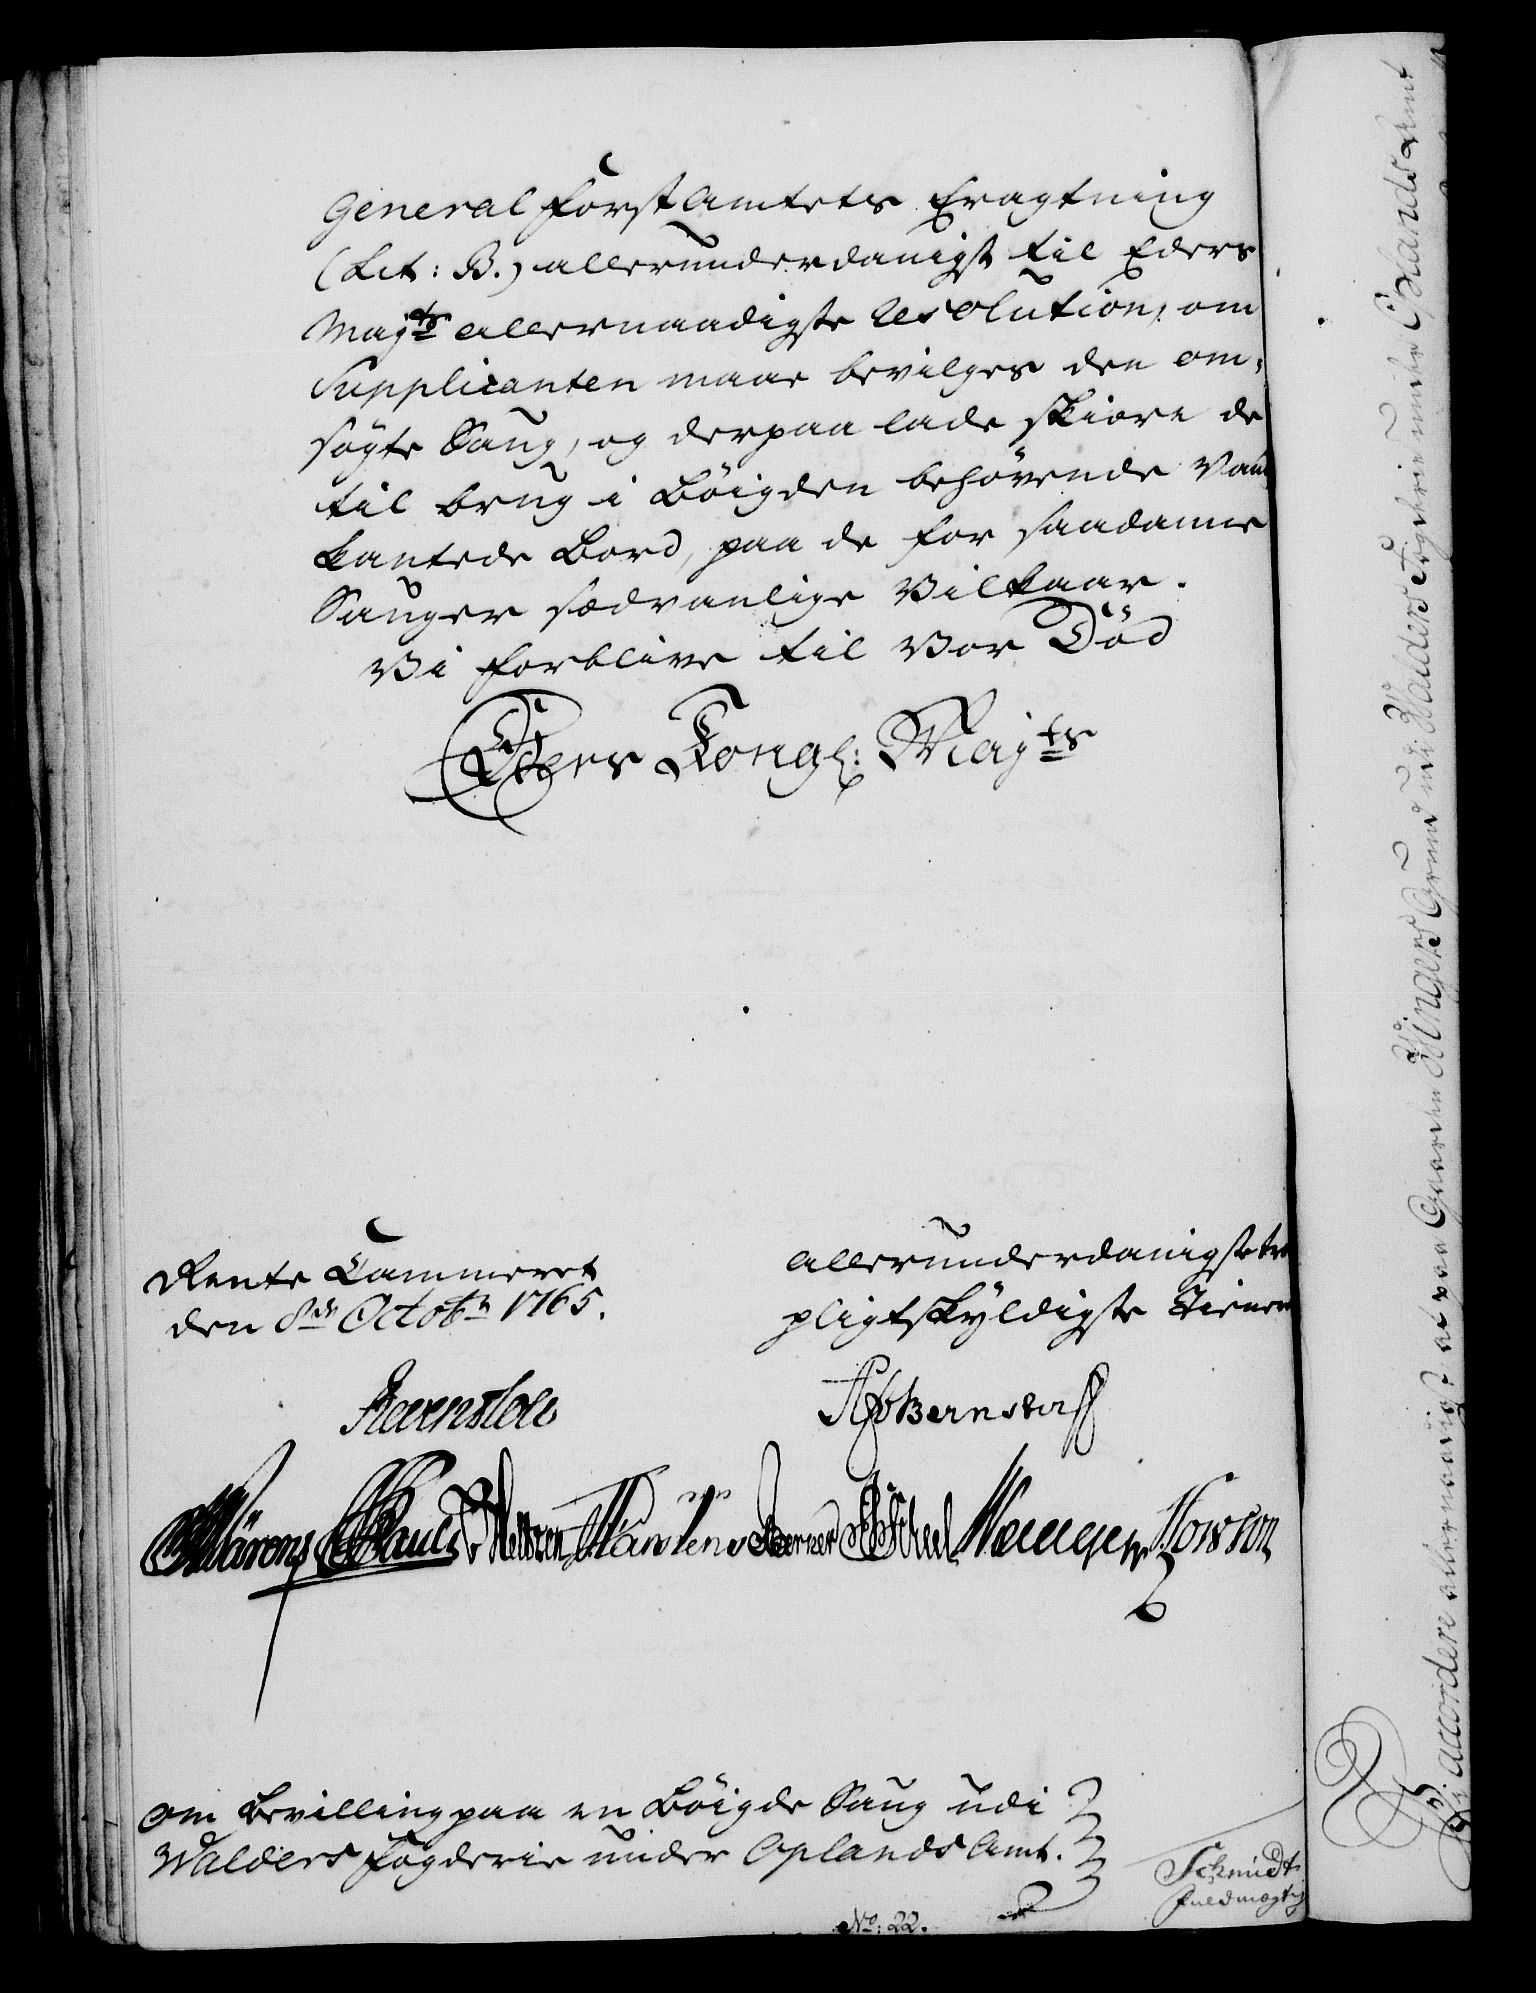 General Forst Amtets Eragtning
(Lit: B.) allerunderdanigst til Eders
Majts allernaadigste Resolution, om
Supplicanten maae bevilges den om-
søgte Saug, og derpaa lade skiære de
til brug i Bøigden behøvende Van
kantede Bord, paa de for saadanne
Sauger sædvanlige Vilkaar.
Vi forblive til Vor Død
Eders Kongl: Majts
Rente Cammeret
den 8de Octobr 1765.
allerunderdanigste
pligtskyldigste Tienere
Reventlou
Bernstorff
Pauli
Om Bevilling paa en Bøigde Saug udi
Walders Fogderie under Oplands Amt.
Schmidt
fuldmægtig
No: 22.
Vi accordere allernaadigst, at paa Gaarden Ringers Grund udi Walders Fogderie under Oplands Amt